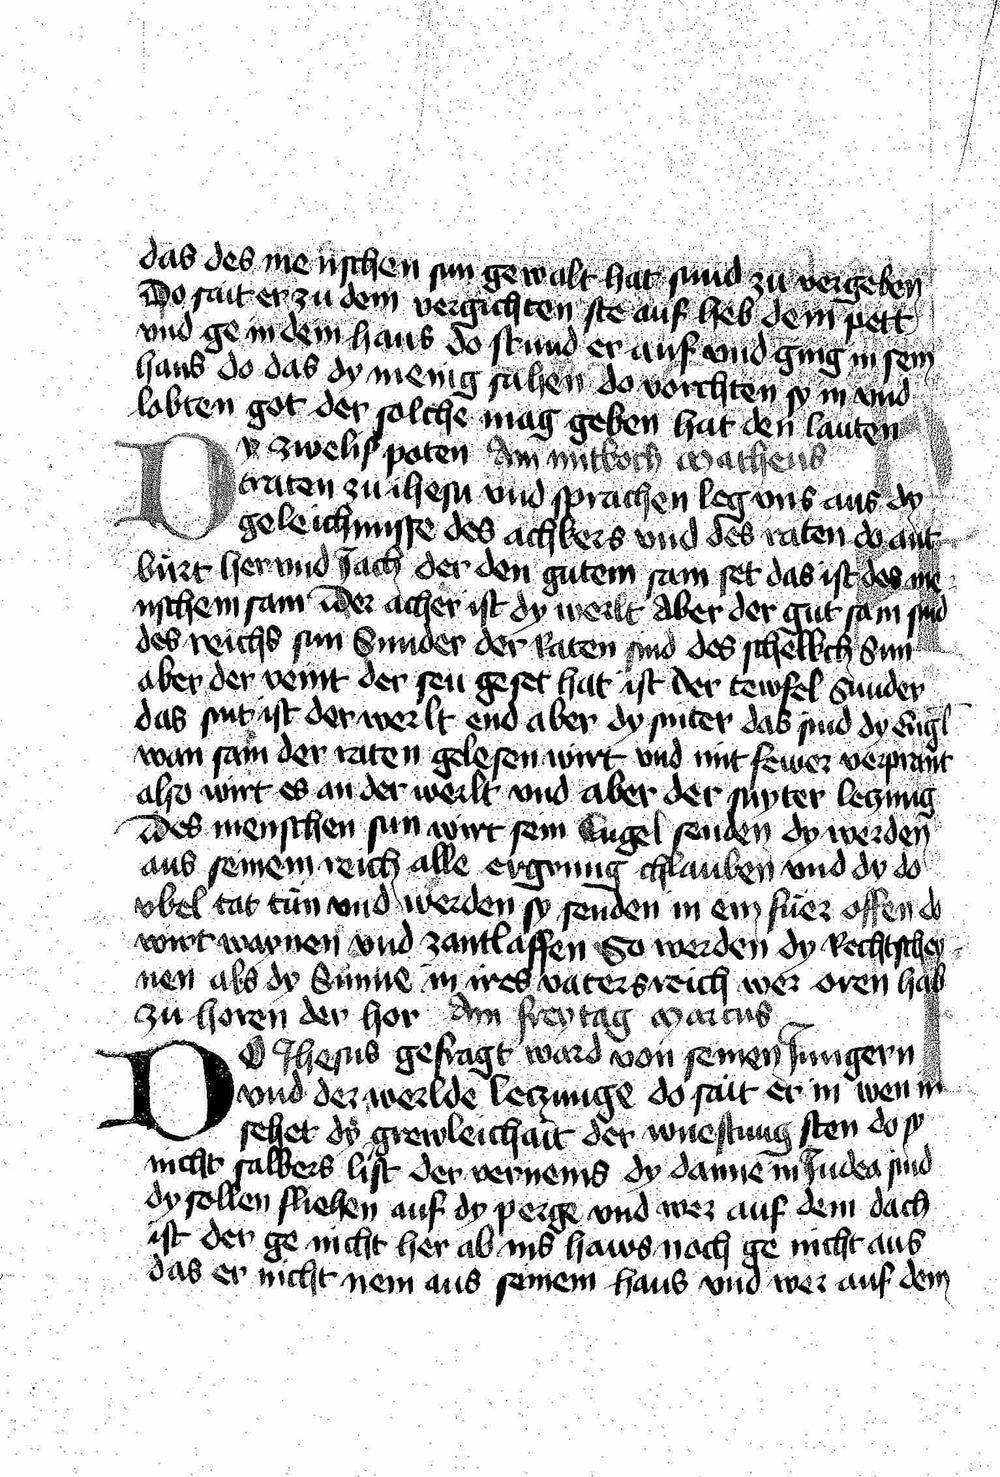 das des menschen sun gewalt hat sund zu vergeben
Do sait er zu dem vergichten ste auf heb dein pett
vnd ge in dein haus do stund er auf vnd ging in sein
haus do das dy menig sahen do vorchten sy in vnd
lobten got der solche mag geben hat den lauten
Dy zwelif poten Am mitboch Matheus
traten zu ihesu vnd sprachen leg vns aus dy
geleichnusse des achkers vnd des raten do ant
burt her vnd Jach der den gutem sam set das ist des me
nschem sam Der acher ist dy werlt Aber der gut sam sind
des reichs sun Sunder der Raten sind des schelkch Sun
aber der veint der seu geset hat ist der tewfel Sunder
das snit ist der werlt end aber dy sniter das sind dy Engl
wan sam der raten gelesen wirt vnd mit fewer verprant
also wirt es an der werlt vnd aber der snyter leczung
Des menschen sun wirt sein Engel senden dy werden
aus seinem reich alle ergrung chlauben vnd dy do
vbel tat tun vnd werden sy senden in ein fuer offen do
wirt waynen vnd zantlaffen So werden dy Rechtschey
nen als dy Sunne in ires vaters reich wer oren hab
zu horen der hor Am freytag Marcus
DO Jhesus gefragt ward von seinen Jungern
vnd der werlde leczunge do sait er in wen in
sehet dy grewleichait der wuestung sten do sy
nicht salbers list der vernems dy danne in Judea sind
dy sollen fliehen auf dy perge vnd wer auf dem dach
ist der ge nicht her ab ins haws noch ge nicht aus
das er nicht nem aus seinem haus vnd wer auf dem